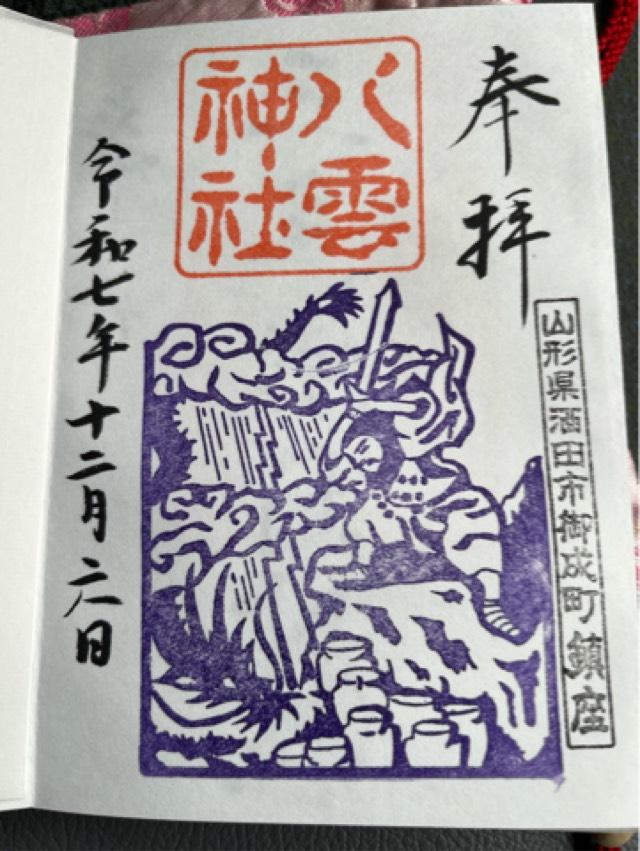 奉拝
八雲
神社
山形県酒田市御成町鎮座
令和七年十二月六日